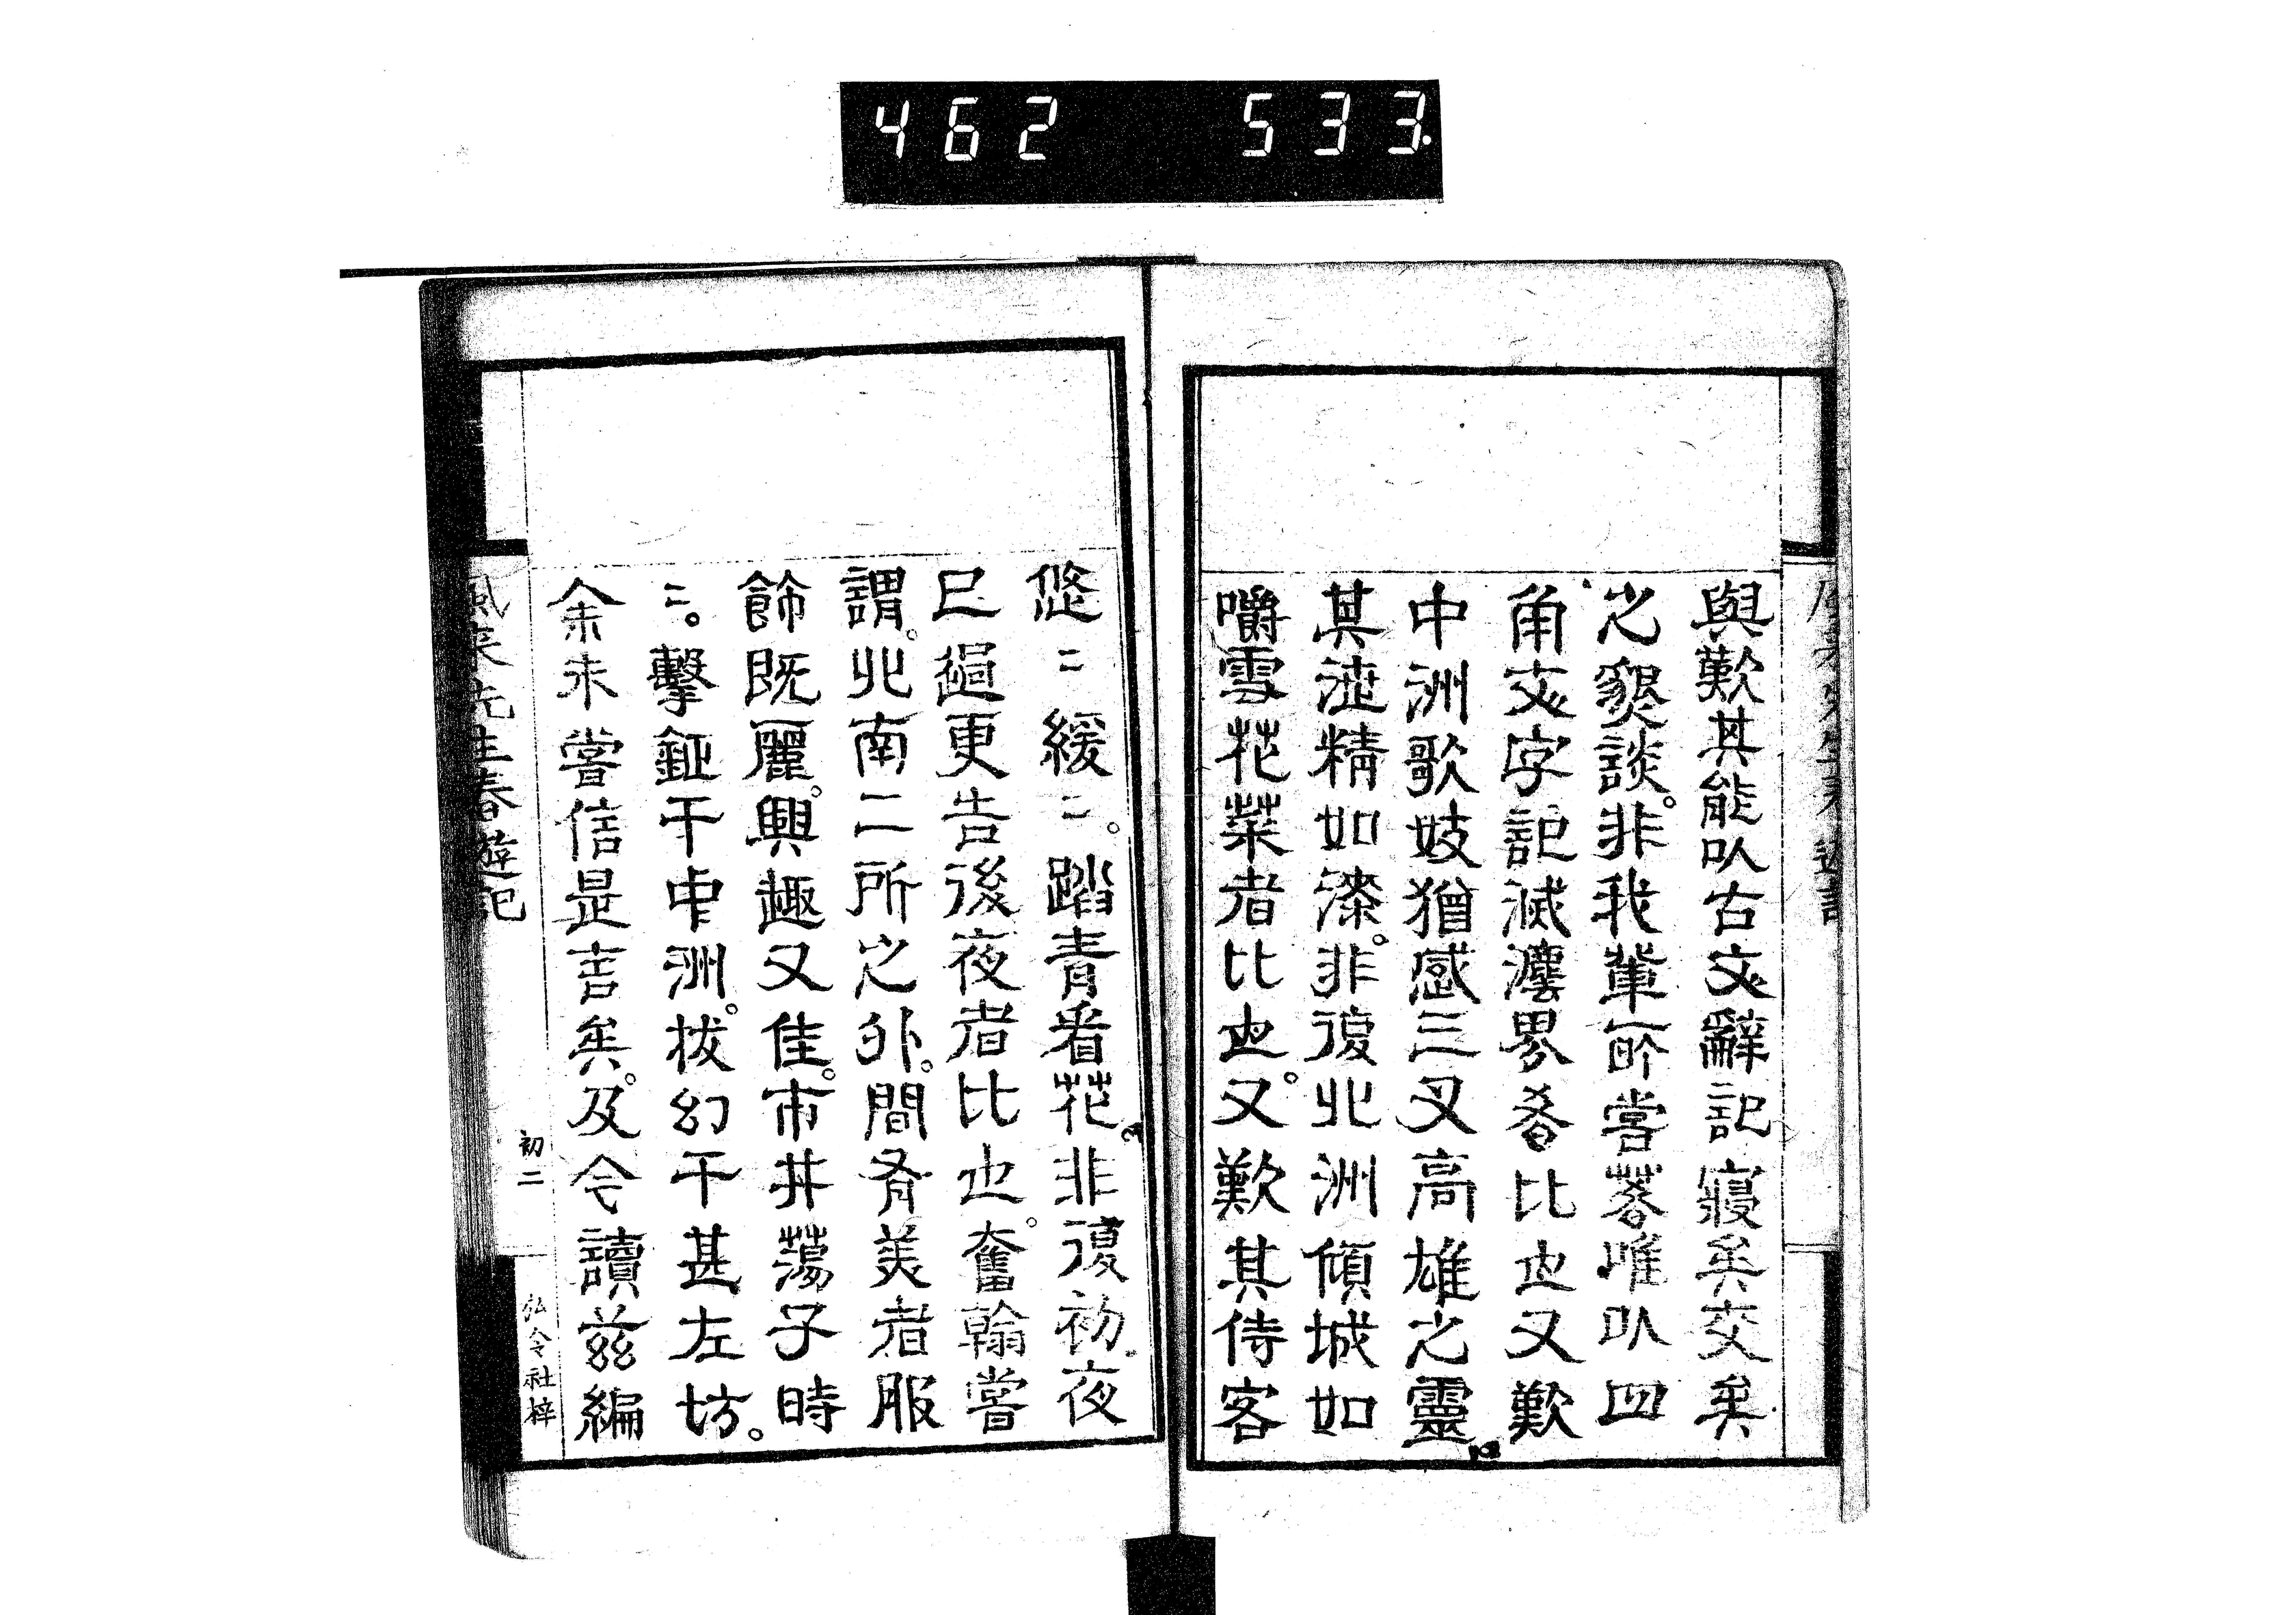 462 533
與歎其能以古文辭記寢矣交矣
之懇談。非我輩所嘗著唯以四
角文字記滅瀍界者比也又歎
中洲歌妓猶感三叉高雄之靈
其涖精如漆。非復北洲傾城如
嚼雪花菜者比也。又歎其侍客
悠〻緩〻。踏青看花非復初夜
已過更告後夜者比也。奮翰嘗
謂。北南二所之外。間有美者服
飾既麗。興趣又佳。市井蕩子時
〻。擊鉦于中洲。拔幻于甚左坊。
余未嘗信是言矣。及今讀茲編
風來先生春遊記
初二
弘令社梓